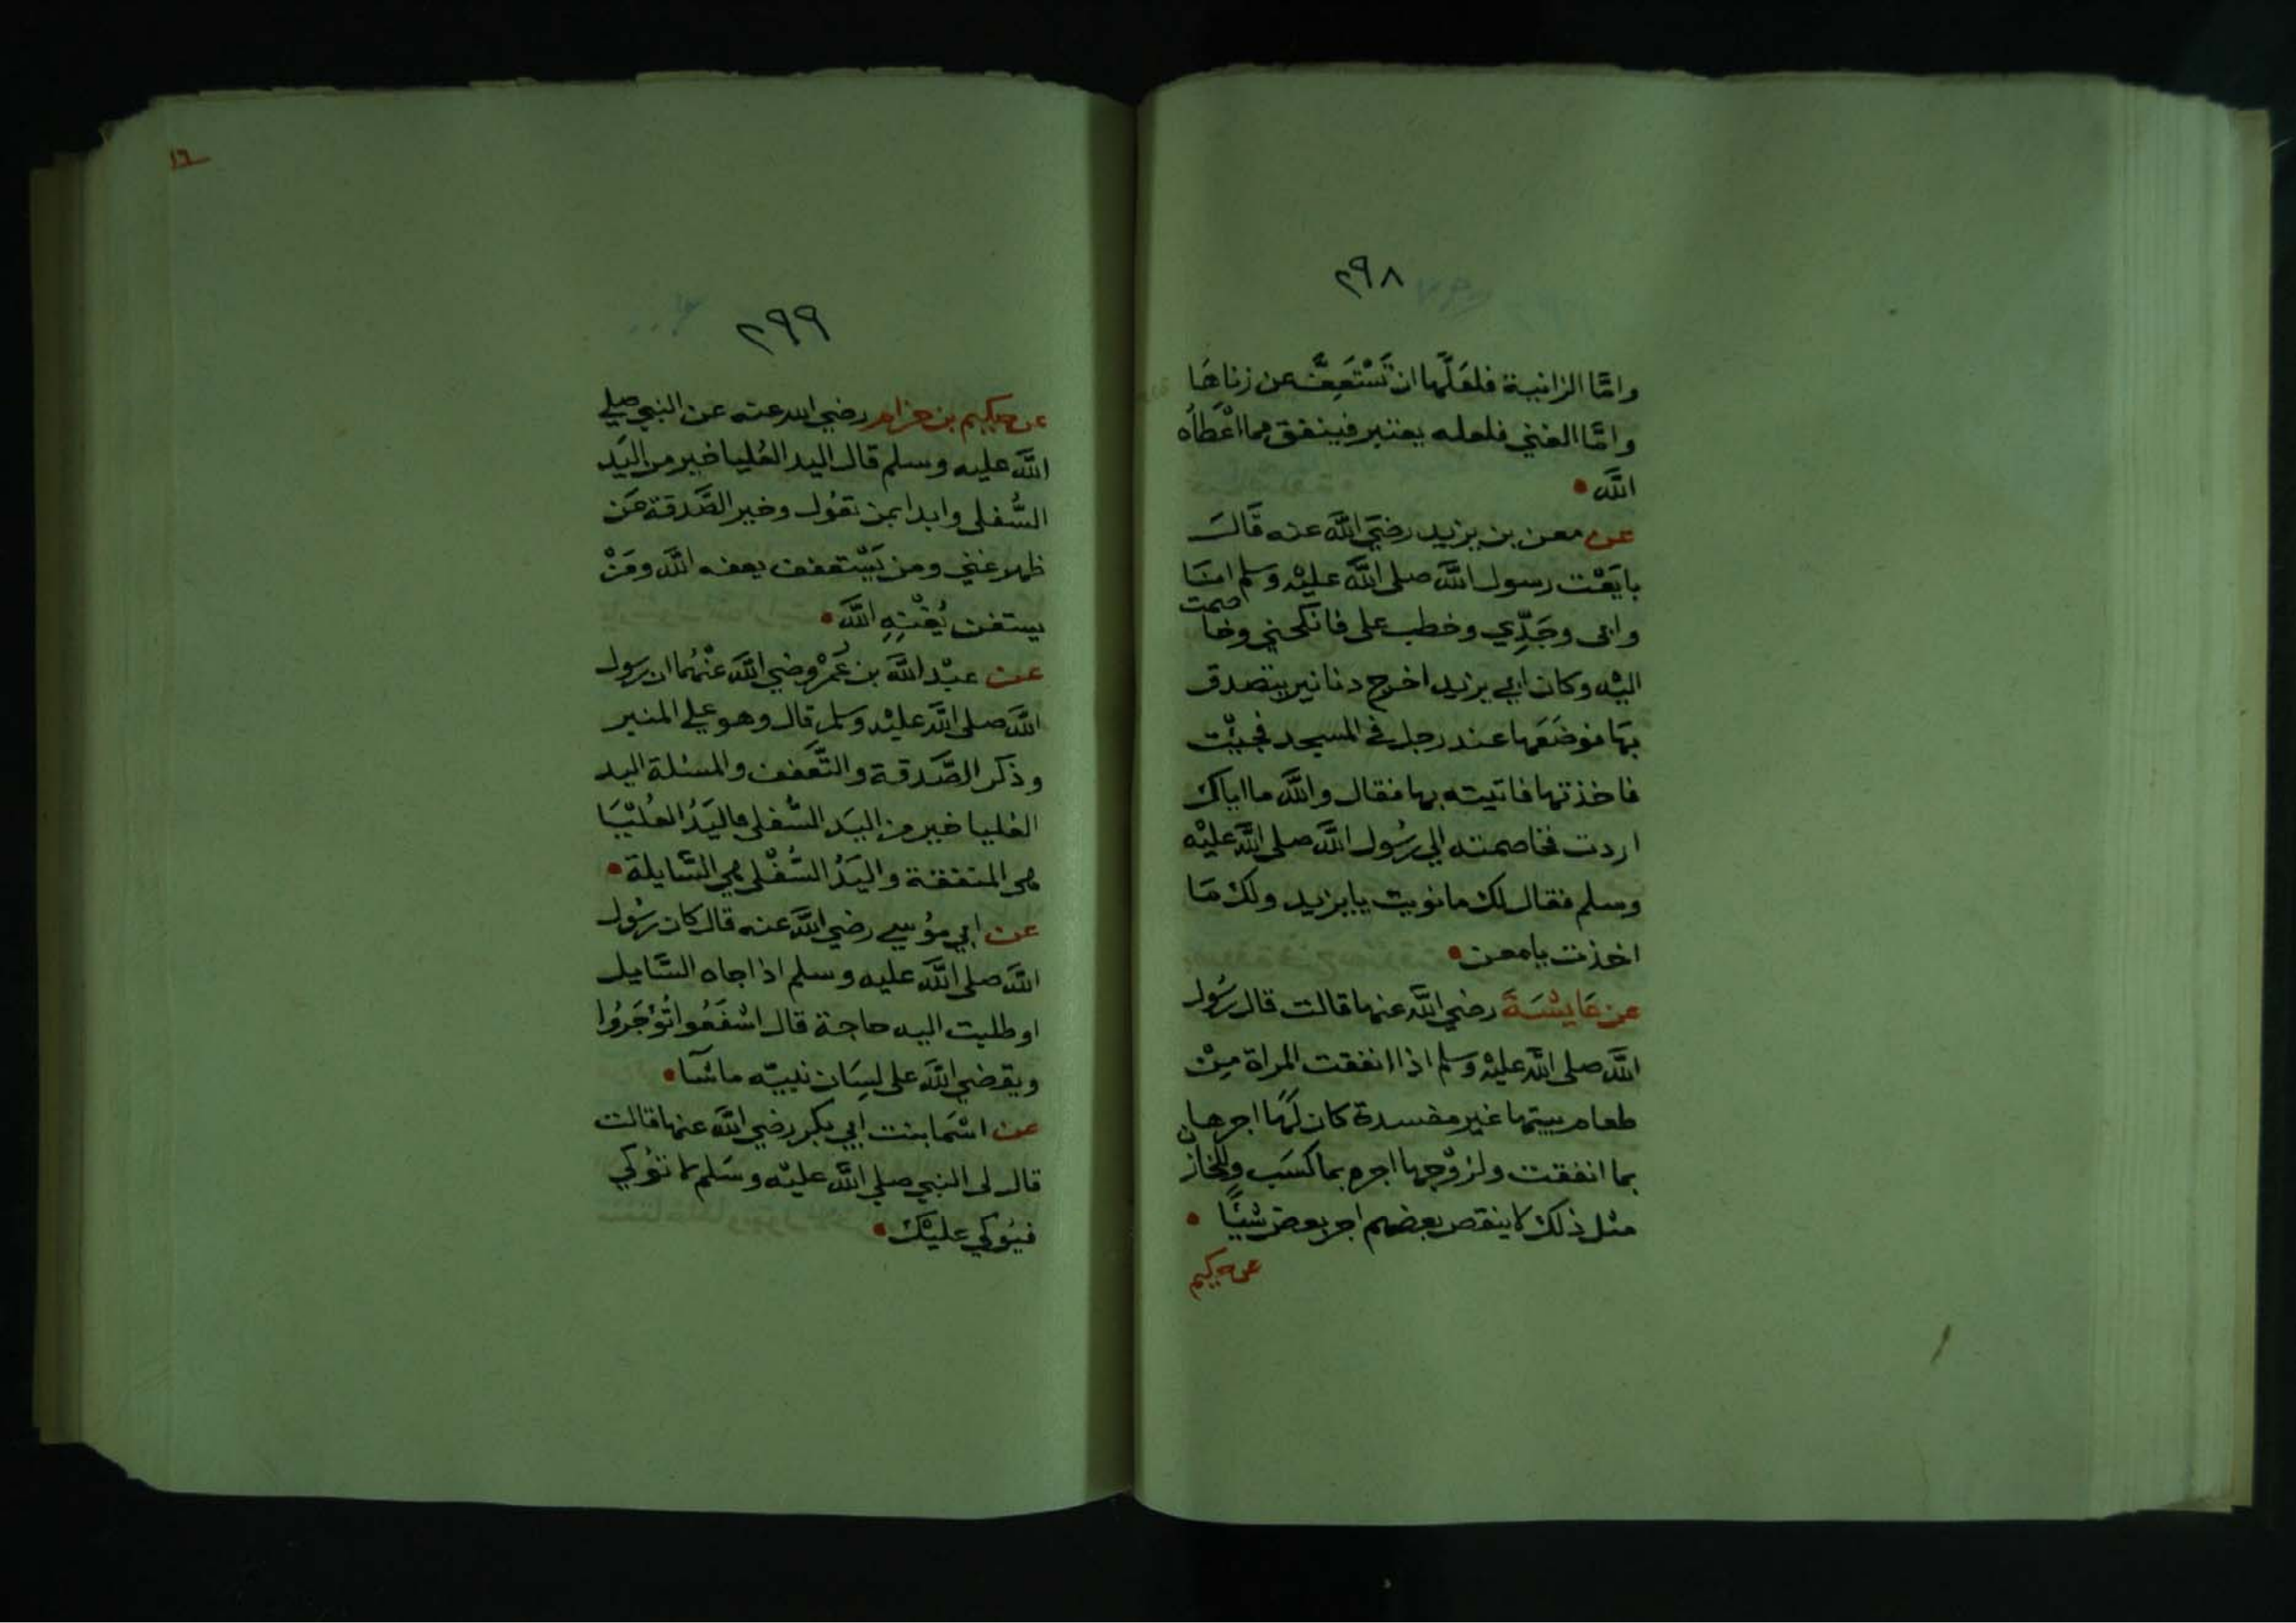 ٢٩٨
وامَّا الزانية فلعَلَّها ان تَسْتَعِفَّ عن زناهَا
وامَّا الغني فلعله يعتبر فينفق مما اعْطَاهُ
اللَّه •
عن معن بن يزيد رضيَ اللَّه عنه قَالَ
بايَعْت رسول اللَّه صلى اللَّه عليْه وسلم انَا
وابى وجَدِّي وخطب على فانكحني وخاصمت
اليْه وكان ابي يزيد اخرج دنانير يتصدق
بهَا فوضَعَها عند رجل في المسجد فجيْت
فاخذتها فاتيته بها فقال واللَّه ما اياك
اردت فخاصمته الي رسُول اللَّه صلى اللَّه عليْه
وسلم فقال لك ما نويت يا يزيد ولك مَا
اخذت يا معن •
عن عَايشَةَ رضي اللَّه عنها قالت قال رسُول
اللَّه صلى اللَّه عليْه وسلم اذا انفقت المراة مِنْ
طعام بيتها غير مفسدة كان لهَا اجرها
بما انفقت ولزوْجها اجره بما كسَب وللخازن
مثل ذلك لا ينقص بعضهم اجر بعض شيْئًا •
عن حكيم
١٦
٢٩٩
عن حكيم بن حزام رضي الله عنه عن النبي صلي
اللَّه عليه وسلم قال اليد العُليا خير من اليَد
السُّفلى وابدا بمن تعُول وخير الصَّدقة عَن
ظهر غني ومن يَسْتعفف يعفه اللَّه ومَنْ
يستغن يُغْنِهِ اللَّه •
عن عبْد اللَّه بن عُمَرْ رضي اللَّه عنْهُما ان رسول
اللَّه صلى اللَّه عليْه وسلم قال وهو علي المنبر
وذكر الصَّدقة والتَّعَفف والمسئلة اليد
العليا خير من اليَد السُّفلى فاليَدُ العُليْيَا
هى المنفقة واليَدُ السُّفْلى هي السَّايلة •
عن ابي موُسي رضي اللَّه عنه قال كان رسُول
اللَّه صلى اللَّه عليه وسلم اذا جاه السَّايل
او طلبت اليه حاجة قال اشفَعُوا تُوْجَرُوا
ويقضي اللَّه على لِسَان نبيّه ما شآ •
عن اسْمَا بنت ابي بكر رضي اللَّه عنها قالت
قال لى النبي صلي اللَّه عليْه وسَلم لا توُكي
فيُوكي عليْك •